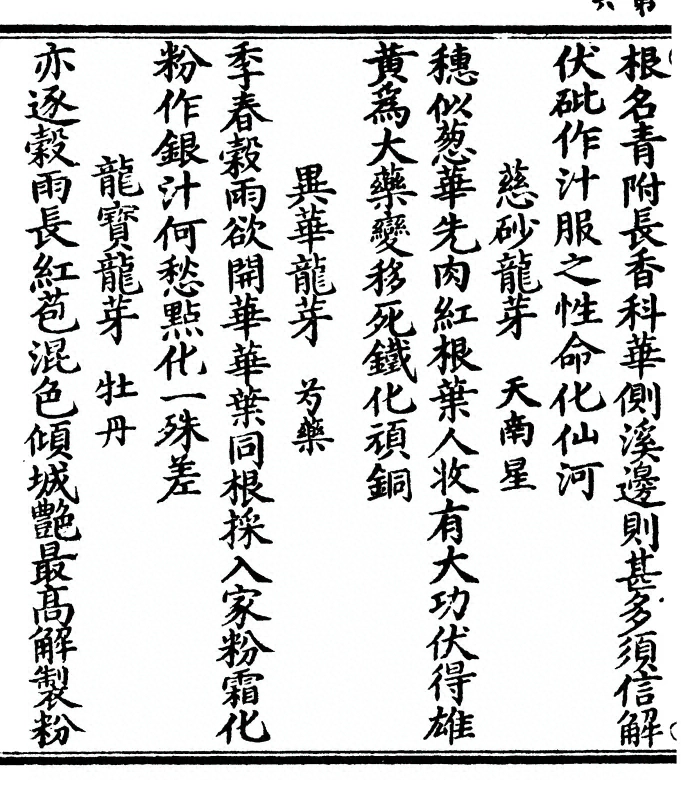 根名青附長香科華側溪邊則甚多須信解
伏砒作汁服之性命化仙河
慈砂龍芽　天南星
穗似葱華先肉紅根葉人收有大功伏得雄
黃為大藥變移死鐵化頑銅
異華龍芽　芍藥
季春穀雨欲開華華葉同根採入家粉霜化
粉作銀汁何愁點化一殊差
龍寶龍芽　牡丹
亦逐穀雨長紅苞混色傾城艷最高解製粉